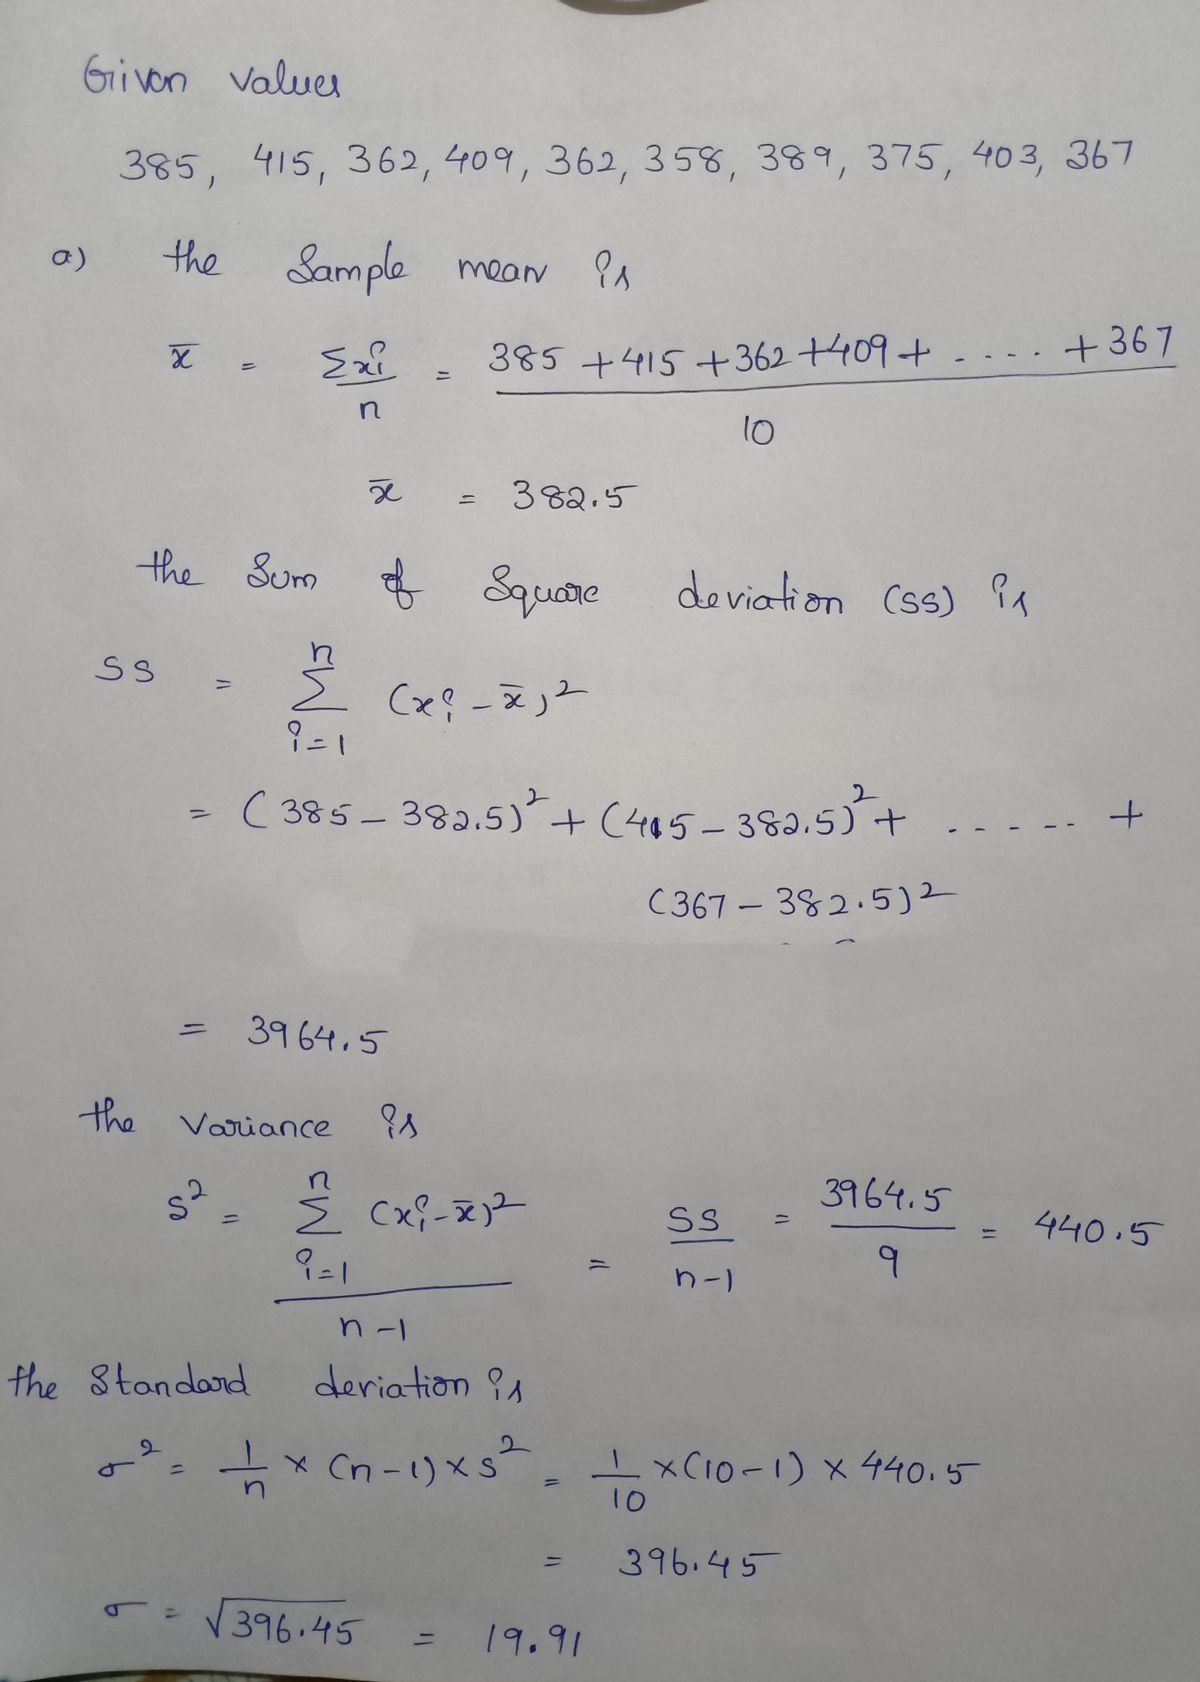 Given values
385, 415, 362, 409, 362, 358, 389, 375, 403, 367
a) the Sample mean is
x̄ = Σxi/n = (385 + 415 + 362 + 409 + - - - - + 367)/10
x̄ = 382.5
the Sum of Square deviation (SS) is
SS = Σ_{i=1}^{n} (xi - x̄)²
= (385 - 382.5)² + (415 - 382.5)² + - - - - - +
(367 - 382.5)²
= 3964.5
the Variance is
s² = Σ_{i=1}^{n} (xi - x̄)² / (n-1) = SS/(n-1) = 3964.5/9 = 440.5
the Standard deviation is
σ² = 1/n × (n-1) × s² = 1/10 × (10-1) × 440.5
= 396.45
σ = √396.45 = 19.91